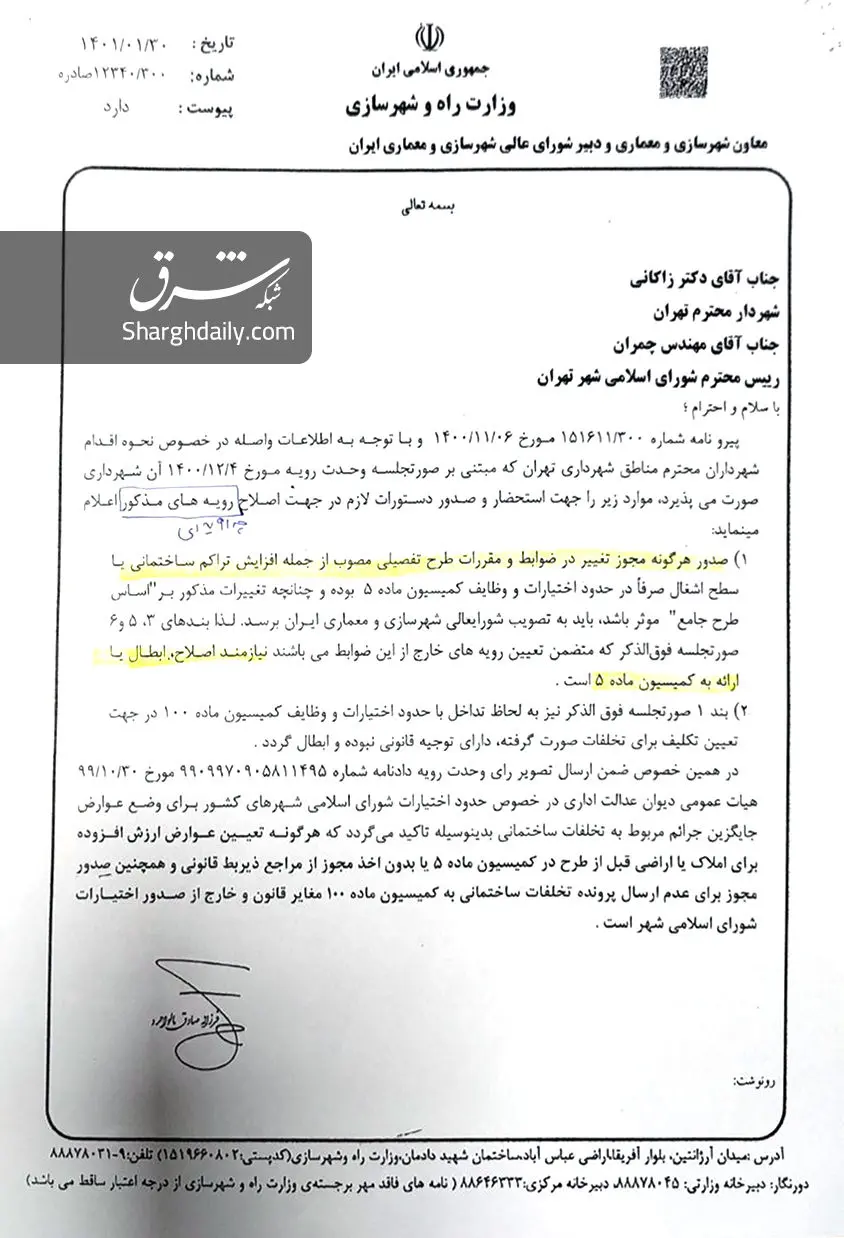 تاریخ : ۱۴۰۱/۰۱/۳۰
شماره: ۱۲۳۴۰/۳۰۰صادره
پیوست : دارد
جمهوری اسلامی ایران
وزارت راه و شهرسازی
معاون شهرسازی و معماری و دبیر شورای عالی شهرسازی و معماری ایران
بسمه تعالی
شبکه شرق
Sharghdaily.com
جناب آقای دکتر زاکانی
شهردار محترم تهران
جناب آقای مهندس چمران
رییس محترم شورای اسلامی شهر تهران
با سلام و احترام ؛
پیرو نامه شماره ۱۵۱۶۱۱/۳۰۰ مورخ ۱۴۰۰/۱۱/۰۶ و با توجه به اطلاعات واصله در خصوص نحوه اقدام
شهرداران محترم مناطق شهرداری تهران که مبتنی بر صورتجلسه وحدت رویه مورخ ۱۴۰۰/۱۲/۴ آن شهرداری
صورت می پذیرد، موارد زیر را جهت استحضار و صدور دستورات لازم در جهت اصلاح رویه های مذکور اعلام
مینماید:
۱) صدور هرگونه مجوز تغییر در ضوابط و مقررات طرح تفصیلی مصوب از جمله افزایش تراکم ساختمانی یا
سطح اشغال صرفاً در حدود اختیارات و وظایف کمیسیون ماده ۵ بوده و چنانچه تغییرات مذکور بر"اساس
طرح جامع" موثر باشد، باید به تصویب شورایعالی شهرسازی و معماری ایران برسد. لذا بندهای ۳، ۵ و۶
صورتجلسه فوق‌الذکر که متضمن تعیین رویه های خارج از این ضوابط می باشند نیازمند اصلاح، ابطال یا
ارائه به کمیسیون ماده ۵ است .
۲) بند ۱ صورتجلسه فوق الذکر نیز به لحاظ تداخل با حدود اختیارات و وظایف کمیسیون ماده ۱۰۰ در جهت
تعیین تکلیف برای تخلفات صورت گرفته، دارای توجیه قانونی نبوده و ابطال گردد .
در همین خصوص ضمن ارسال تصویر رای وحدت رویه دادنامه شماره ۹۹۰۹۹۷۰۹۰۵۸۱۱۴۹۵ مورخ ۹۹/۱۰/۳۰
هیات عمومی دیوان عدالت اداری در خصوص حدود اختیارات شورای اسلامی شهرهای کشور برای وضع عوارض
جایگزین جرائم مربوط به تخلفات ساختمانی بدینوسیله تاکید می‌گردد که هرگونه تعیین عوارض ارزش افزوده
برای املاک یا اراضی قبل از طرح در کمیسیون ماده ۵ یا بدون اخذ مجوز از مراجع ذیربط قانونی و همچنین صدور
مجوز برای عدم ارسال پرونده تخلفات ساختمانی به کمیسیون ماده ۱۰۰ مغایر قانون و خارج از صدور اختیارات
شورای اسلامی شهر است .
فرزانه صادق مالواجرد
رونوشت:
آدرس :میدان آرژانتین، بلوار آفریقا،اراضی عباس آباد،ساختمان شهید دادمان،وزارت راه وشهرسازی(کدپستی:۱۵۱۹۶۶۰۸۰۲) تلفن:۹-۸۸۸۷۸۰۳۱
دورنگار: دبیرخانه وزارتی: ۸۸۸۷۸۰۴۵، دبیرخانه مرکزی:۸۸۶۴۶۳۳۳ ( نامه های فاقد مهر برجسته‌ی وزارت راه و شهرسازی از درجه اعتبار ساقط می باشد)